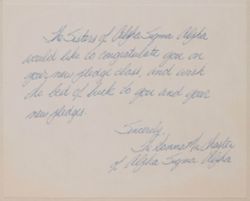 The Sisters of Alpha Sigma Alpha
would like to congratulate you on
your new pledge class, and wish
the best of luck to you and your
new pledges.
Sincerely,
The Gamma Mu Chapter
of Alpha Sigma Alpha